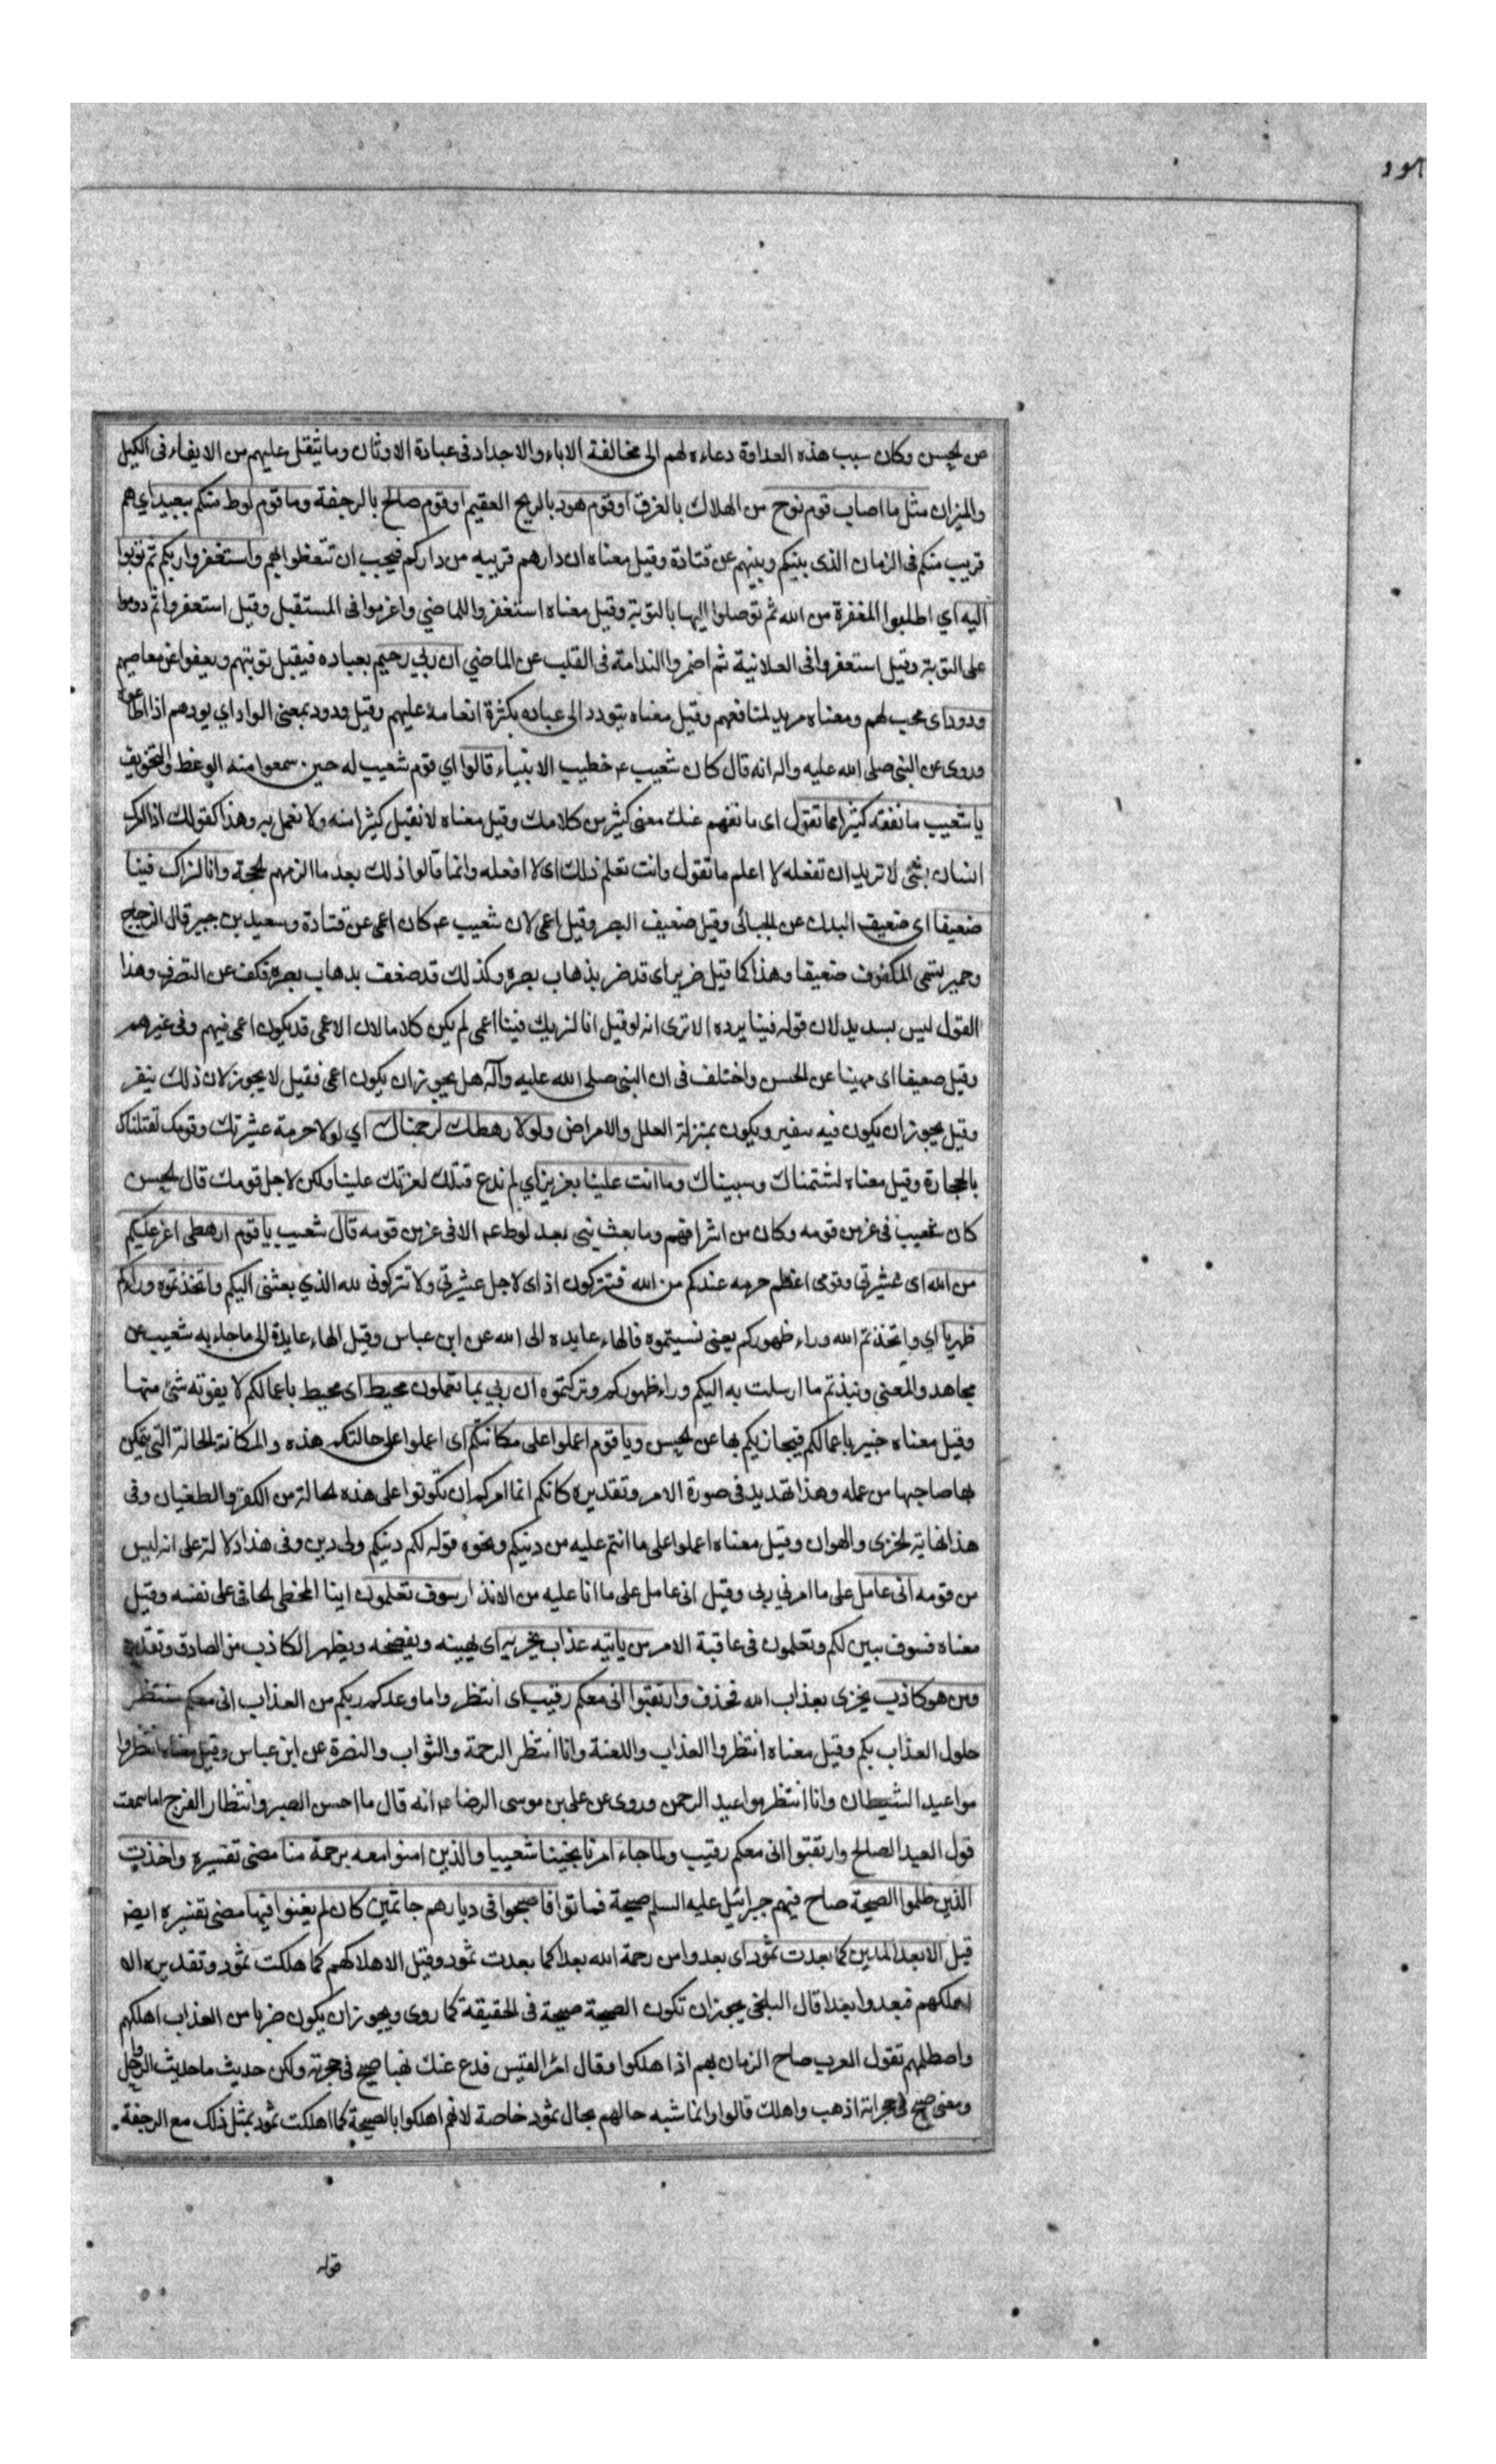 هود
عن الحسن وكان سبب هذه العداوة دعاءه لهم الى مخالفة الاباء والاجداد فى عبادة الاوثان وما يثقل عليهم من الايفاء فى الكيل
والميزان مثل ما اصاب قوم نوح من الهلاك بالغرق او قوم هود بالريح العقيم او قوم صالح بالرجفة وما قوم لوط منكم ببعيد اي هم
قريب منكم فى الزمان الذى بينكم وبينهم عن قتادة وقيل معناه ان دارهم قريبه من داركم فيجب ان تتعظوا بهم واستغفروا ربكم ثم توبوا
اليه اي اطلبوا المغفرة من الله ثم توصلوا اليها بالتوبة وقيل معناه استغفروا للماضي واعزموا فى المستقبل وقيل استغفروا ثم دوموا
على التوبة وقيل استغفروا فى العلانية ثم اضمروا الندامة فى القلب عن الماضي ان ربي رحيم بعباده فيقبل توبتهم ويعفوا عن معاصيهم
ودود اى محب لهم ومعناه مريد لمنافعهم وقيل معناه يتودد الى عباده بكثرة انعامه عليهم وقيل ودود بمعنى الواد اي يودهم اذا اطاعوه
وروى عن النبى صلى الله عليه واله انه قال كان شعيب ع خطيب الانبياء قالوا اي قوم شعيب له حين سمعوا منه الوعظ والتخويف
يا شعيب ما نفقه كثيرا مما تقول اى ما نفهم عنك معنى كثير من كلامك وقيل معناه لا نقبل كثيرا منه ولا نعمل به وهذا كقولك اذا امرك
انسان بشئ لا تريد ان تفعله لا اعلم ما تقول وانت تعلم ذلك اى لا افعله وانما قالوا ذلك بعد ما الزمهم الحجة وانا لنراك فينا
ضعيفا اى ضعيف البدن عن الجبائى وقيل ضعيف البصر وقيل اعمى لان شعيب ع كان اعمى عن قتادة وسعيد بن جبير قال الزجاج
وحمير تسمى المكفوف ضعيفا وهذا كما قيل ضرير اى قد ضر بذهاب بصره وكذلك قد ضعف بذهاب بصره فكف عن التصرف وهذا
القول ليس بسديد لان قوله فينا يرده الا ترى انه لو قيل انا لنريك فينا اعمى لم يكن كلاما لان الاعمى قد يكون اعمى فيهم وفى غيرهم
وقيل ضعيفا اى مهينا عن الحسن واختلف فى ان النبى صلى الله عليه وآله هل يجوز ان يكون اعمى فقيل لا يجوز لان ذلك ينفر
وقيل يجوز ان يكون فيه سفير ويكون بمنزلة العلل والامراض ولولا رهطك لرجمناك اي لولا حرمة عشيرتك وقومك لقتلناك
بالحجارة وقيل معناه لشتمناك وسببناك وما انت علينا بعزيز اي لم ندع قتلك لعزتك علينا ولكن لاجل قومك قال الحسن
كان شعيب فى عز من قومه وكان من اشرافهم وما بعث نبى بعد لوط ع الا فى عز من قومه قال شعيب يا قوم ارهطى اعز عليكم
من الله اى عشيرتى وقومى اعظم حرمه عندكم من الله فتتركون اذاى لاجل عشيرتى ولا تتركونى لله الذي بعثنى اليكم واتخذتموه وراءكم
ظهريا اي واتخذتم الله وراء ظهوركم يعنى نسيتموه فالهاء عايده الى الله عن ابن عباس وقيل الهاء عايدة الى ما جاء به شعيب عن
مجاهد والمعنى ونبذتم ما ارسلت به اليكم وراء ظهوركم وتركتموه ان ربي بما تعملون محيط اى محيط باعمالكم لا يفوته شئ منها
وقيل معناه خبير باعمالكم فيجازيكم بها عن الحسن ويا قوم اعملوا على مكانتكم اى اعملوا على حالتكم هذه والمكانة الحالة التى يتمكن
بها صاحبها من عمله وهذا تهديد فى صورة الامر وتقديره كانكم انما امركم ان تكونوا على هذه الحالة من الكفر والطغيان وفى
هذا نهاية الخزى والهوان وقيل معناه اعملوا على ما انتم عليه من دينكم ونحوه قوله لكم دينكم ولى دين وفى هذا دلالة على انه ليس
من قومه انى عامل على ما امرني ربى وقيل انى عامل على ما انا عليه من الانذار سوف تعلمون اينا المخطى الجانى على نفسه وقيل
معناه فسوف يبين لكم وتعلمون فى عاقبة الامر من ياتيه عذاب يخزيه اى يهينه ويفضحه ويظهر الكاذب من الصادق وتقديره
ومن هو كاذب يخزى بعذاب الله فحذف وارتقبوا انى معكم رقيب اى انتظروا ما وعدكم ربكم من العذاب انى معكم منتظر
حلول العذاب بكم وقيل معناه انتظروا العذاب واللعنة وانا انتظر الرحمة والثواب والنصرة عن ابن عباس وقيل معناه انتظروا
مواعيد الشيطان وانا انتظر مواعيد الرحمن وروى عن على بن موسى الرضا ع انه قال ما احسن الصبر وانتظار الفرج اما سمعت
قول العبد الصالح وارتقبوا انى معكم رقيب ولما جاء امرنا نجينا شعيبا والذين امنوا معه برحمة منا مضى تفسيره واخذت
الذين ظلموا الصيحة صاح فيهم جبرائيل عليه السلم صيحة فماتوا فاصبحوا فى ديارهم جاثمين كان لم يغنوا فيها مضى تفسيره ايضا
قيل الا بعدا لمدين كما بعدت ثمود اى بعدوا من رحمة الله بعدا كما بعدت ثمود وقيل الا هلاكا لهم كما هلكت ثمود وتقديره الا
اهلكهم فبعدوا بعدا قال البلخى يجوز ان تكون الصيحة صيحة فى الحقيقة كما روى ويجوز ان يكون ضربا من العذاب اهلكهم
واصطلمهم تقول العرب صاح الزمان بهم اذا هلكوا وقال امرؤ القيس فدع عنك نهبا صيح فى حجرته ولكن حديث ما حديث الرواحل
ومعنى صيح فى حجراته اذهب واهلك قالوا وانما شبه حالهم بحال ثمود خاصة لانهم اهلكوا بالصيحة كما اهلكت ثمود بمثل ذلك مع الرجفة
قوله